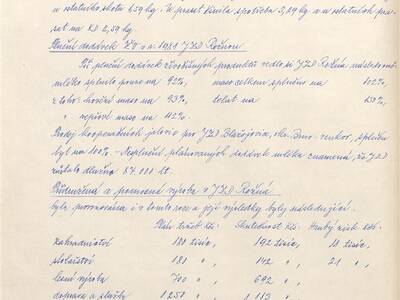 u ostatního skotu 659 kg. U prasat činila spotřeba 3,29 kg a u ostatních pra-
sat na KD 2,59 kg.
Plnění dodávek ŽV v r. 1981 JZD Rožná
Při plnění dodávek živočišných produktů vedlo si JZD Rožná následovně
mléko splnilo pouze na 92%, maso celkem splněno na 102%
z toho: hovězí maso na 93%, telat na 630%
" vepřové maso na 112%
Prodej kooperačních jalovic pro JZD Blažejovice, okr. Brno-venkov, splněn
byl na 100%. - Neplnění plánovaných dodávek mléka znamená, že JZD
zůstalo dlužno 84.000 lt.
Přidružená a pomocná výroba v JZD Rožná
byla provozována i v tomto roce a její výsledky byly následující:
Plán tržeb Kčs: Skutečnost Kčs: Hrubý zisk Kčs:
zahradnictví 180 tisíc, 192 tisíc, 18 tisíc,
stolařství 180 " , 142 " , 21 " ,
lesní výroba 700 " , 692 " ,
doprava a služby 1250 " , 1 113 " ,